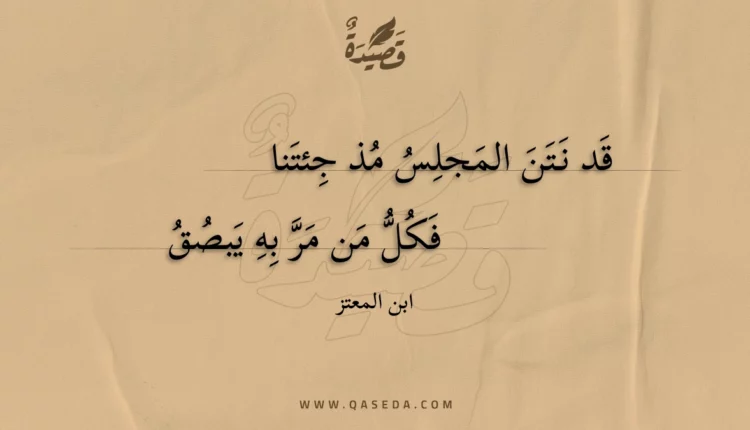 قَصِيدَةٌ
قَد نَتَنَ المَجلِسُ مُذ جِئتَنا
فَكُلُّ مَن مَرَّ بِهِ يَبصُقُ
ابن المعتز
WWW.QASEDA.COM